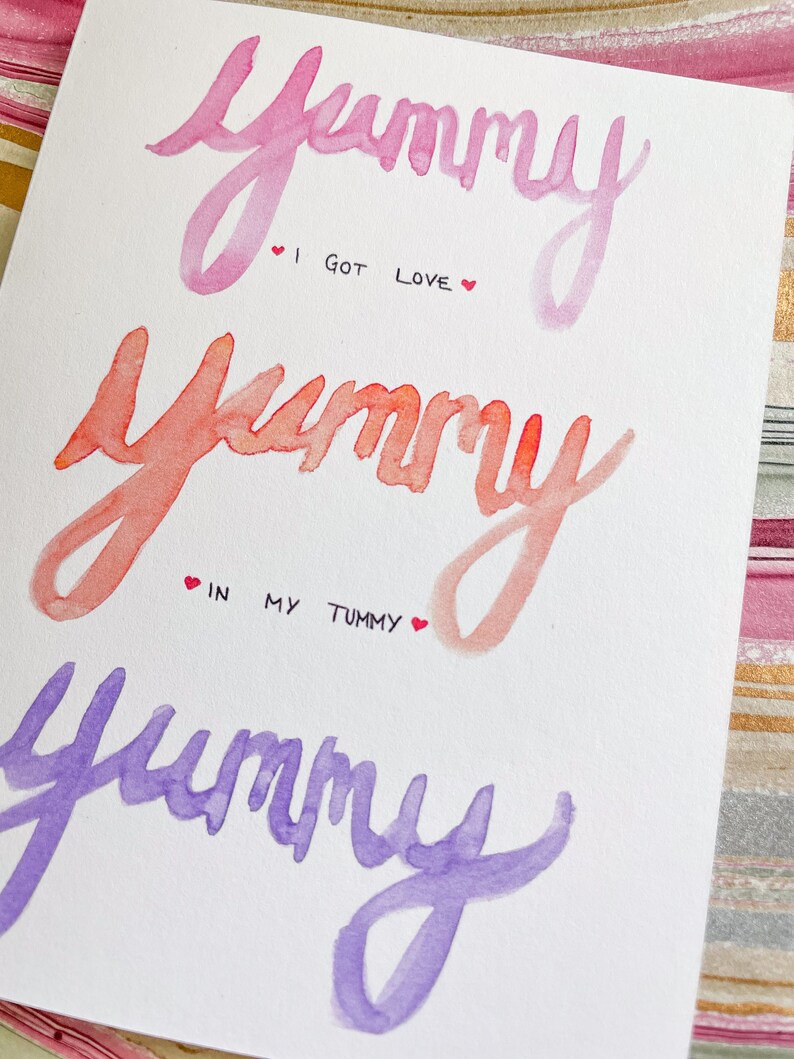 yummy
I GOT LOVE
yummy
IN MY TUMMY
yummy